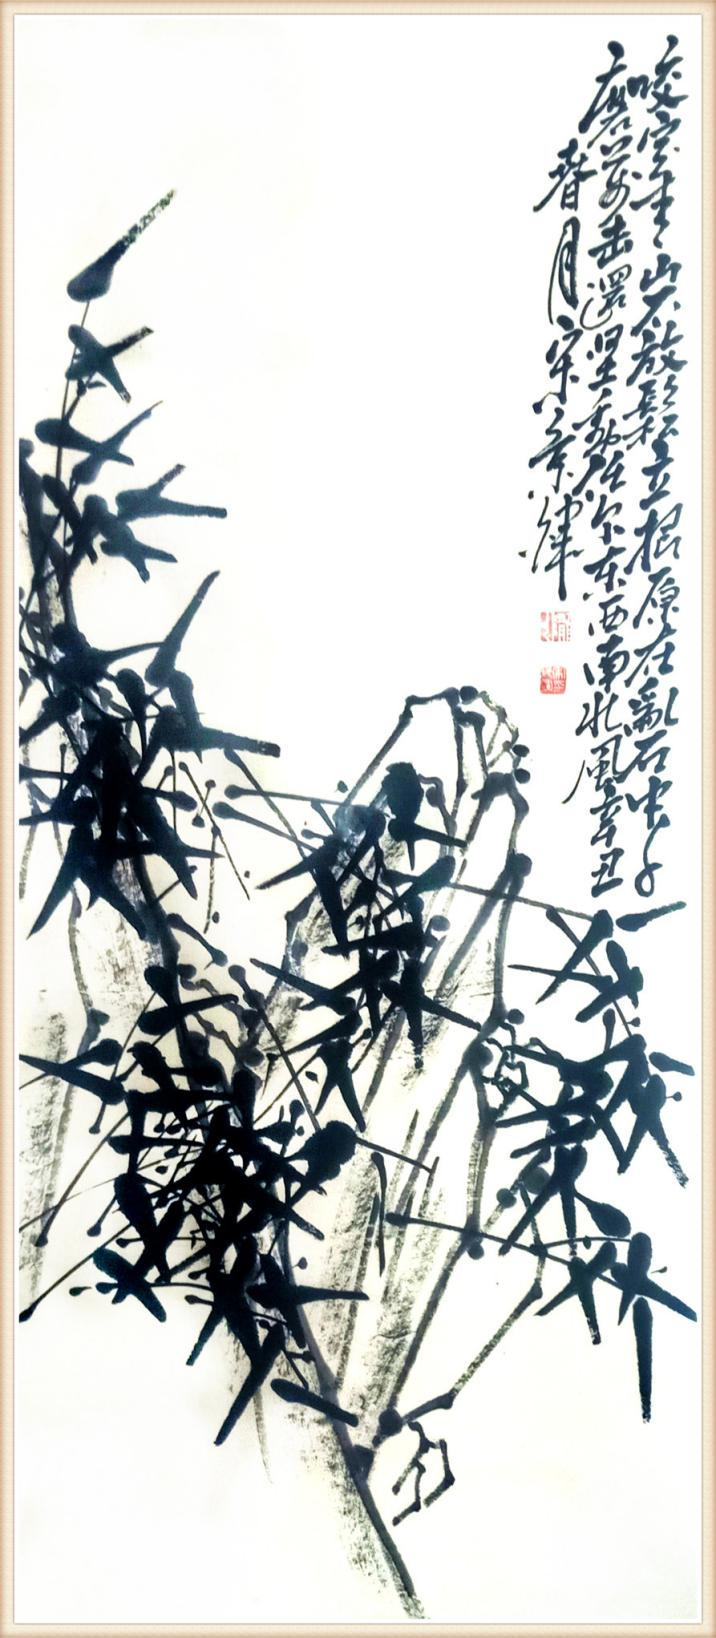 咬定青山不放鬆立根原在亂石中千
磨萬击還坚勁任尔东西南北風辛丑
春月宋